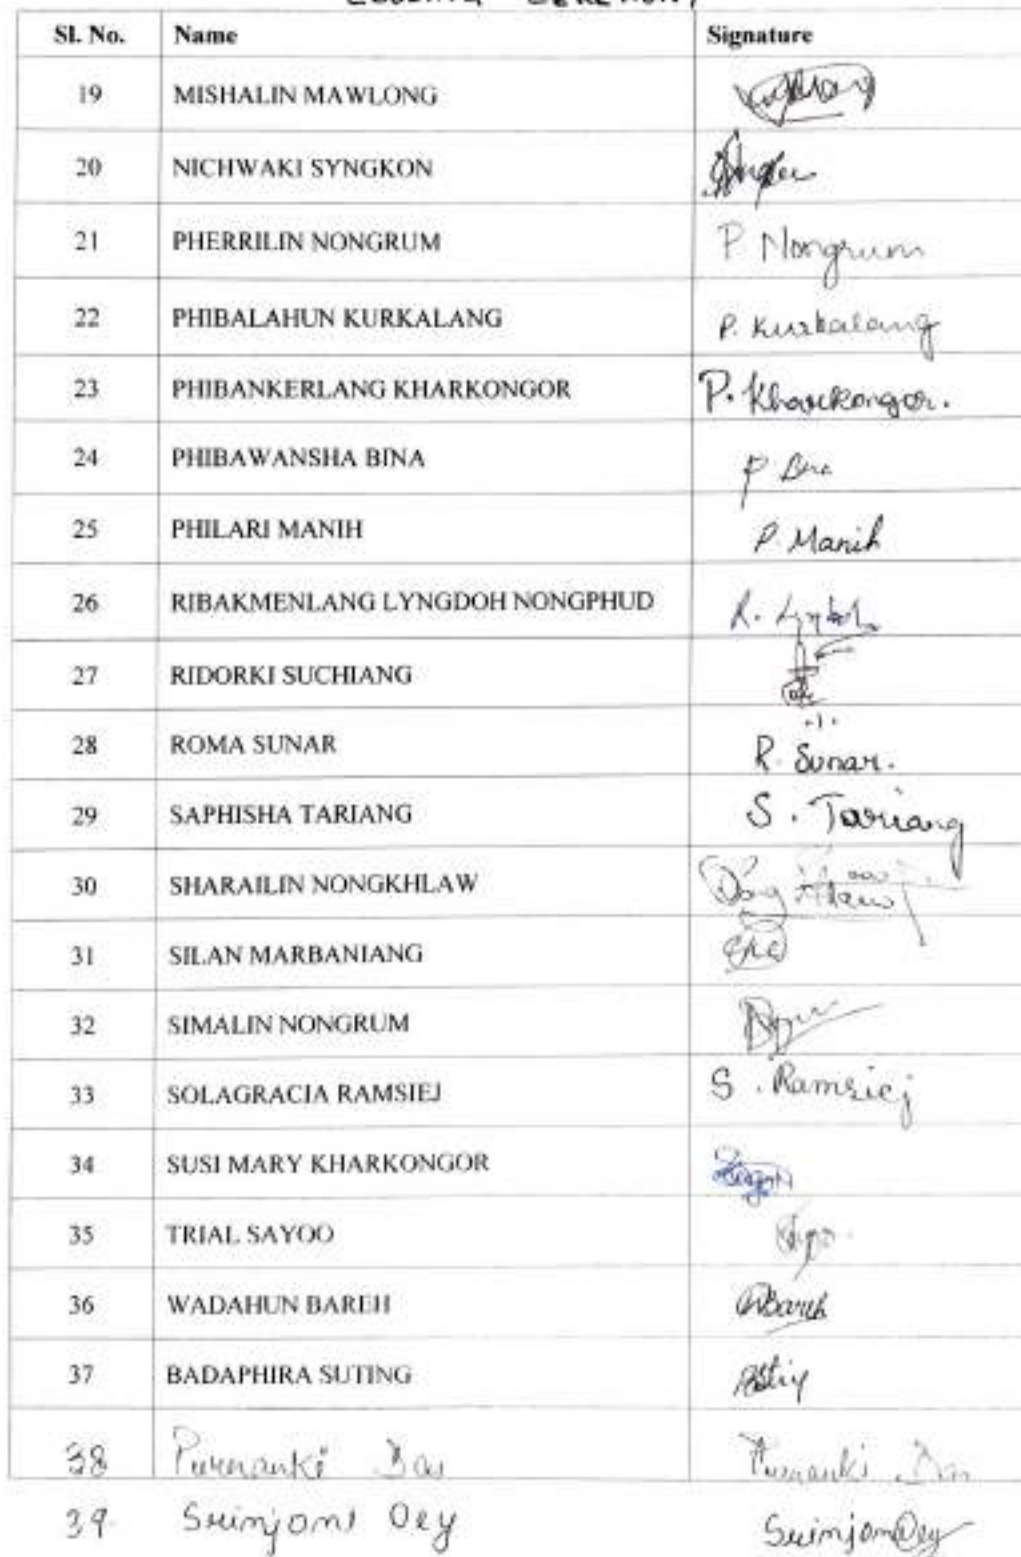 CLOSING CEREMONY
Sl. No. Name Signature
19 MISHALIN MAWLONG
20 NICHWAKI SYNGKON
21 PHERRILIN NONGRUM P. Nongrum
22 PHIBALAHUN KURKALANG P. Kurkalang
23 PHIBANKERLANG KHARKONGOR P. Kharkongor.
24 PHIBAWANSHA BINA P. Bina
25 PHILARI MANIH P. Manih
26 RIBAKMENLANG LYNGDOH NONGPHUD
27 RIDORKI SUCHIANG
28 ROMA SUNAR R. Sunar.
29 SAPHISHA TARIANG S. Tariang
30 SHARAILIN NONGKHLAW
31 SILAN MARBANIANG
32 SIMALIN NONGRUM
33 SOLAGRACIA RAMSIEJ S. Ramsiej
34 SUSI MARY KHARKONGOR
35 TRIAL SAYOO
36 WADAHUN BAREH WBareh
37 BADAPHIRA SUTING
38 Purnanki Das Purnanki Das
39 Srinjoni Dey Srinjoni Dey